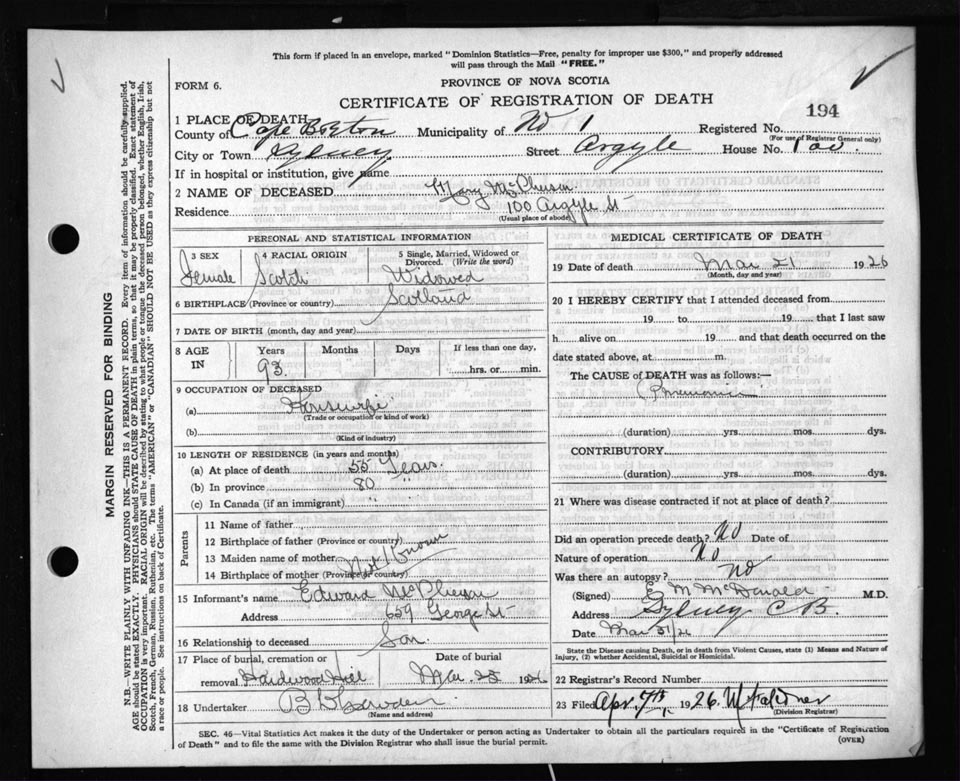 This form if placed in an envelope, marked "Dominion Statistics—Free, penalty for improper use $300," and properly addressed
will pass through the Mail "FREE."
FORM 6.
PROVINCE OF NOVA SCOTIA
CERTIFICATE OF REGISTRATION OF DEATH
194
1 PLACE OF DEATH
County of Cape Breton Municipality of No 1 Registered No.
(For use of Registrar General only)
City or Town Sydney Street Argyle House No. 100.
If in hospital or institution, give name
2 NAME OF DECEASED Mary McPherson
Residence 100 Argyle St
(Usual place of abode)
PERSONAL AND STATISTICAL INFORMATION
3 SEX 4 RACIAL ORIGIN 5 Single, Married, Widowed or
Divorced. (Write the word)
Female Scotch Widowed
6 BIRTHPLACE (Province or country) Scotland
7 DATE OF BIRTH (month, day and year)
8 AGE IN Years Months Days If less than one day,
93 hrs. or min.
9 OCCUPATION OF DECEASED
(a) Housewife
(Trade or occupation or kind of work)
(b)
(Kind of industry)
10 LENGTH OF RESIDENCE (in years and months)
(a) At place of death 55 Years.
(b) In province 80 "
(c) In Canada (if an immigrant) " "
Parents
11 Name of father
12 Birthplace of father (Province or country)
13 Maiden name of mother Not Known
14 Birthplace of mother (Province or country)
15 Informant's name Edward McPherson
Address 659 George St
16 Relationship to deceased Son
17 Place of burial, cremation or Date of burial
removal Hardwood Hill Mar. 23 1926
18 Undertaker
(Name and address)
MEDICAL CERTIFICATE OF DEATH
19 Date of death Mar 21 1926
(Month, day and year)
20 I HEREBY CERTIFY that I attended deceased from
19 to 19 that I last saw
h alive on 19 and that death occurred on the
date stated above, at m.
The CAUSE of DEATH was as follows:—
Pneumonia
(duration) yrs. mos. dys.
CONTRIBUTORY.
(duration) yrs. mos. dys.
21 Where was disease contracted if not at place of death?
Did an operation precede death? No Date of
Nature of operation No
Was there an autopsy? No
(Signed) E M McDonald M.D.
Address Sydney C B.
Date Mar 31/26
State the Disease causing Death, or in death from Violent Causes, state (1) Means and Nature of
Injury, (2) whether Accidental, Suicidal or Homicidal.
22 Registrar's Record Number
23 Filed Apr. 7th, 1926.
(Division Registrar)
SEC. 46—Vital Statistics Act makes it the duty of the Undertaker or person acting as Undertaker to obtain all the particulars required in the "Certificate of Registration
of Death" and to file the same with the Division Registrar who shall issue the burial permit.
(OVER)
MARGIN RESERVED FOR BINDING
N.B.—WRITE PLAINLY WITH UNFADING INK—THIS IS A PERMANENT RECORD. Every item of information should be carefully supplied.
AGE should be stated EXACTLY. PHYSICIANS should STATE CAUSE OF DEATH in plain terms, so that it may be properly classified. Exact statement of
OCCUPATION is very important. RACIAL ORIGIN will be described by stating to what people or tongue the deceased person belonged, whether English, Irish,
Scotch, French, German, Russian, Ruthenian, etc. The terms "AMERICAN" or "CANADIAN" SHOULD NOT BE USED as they express citizenship but not
a race or people. See instructions on back of Certificate.